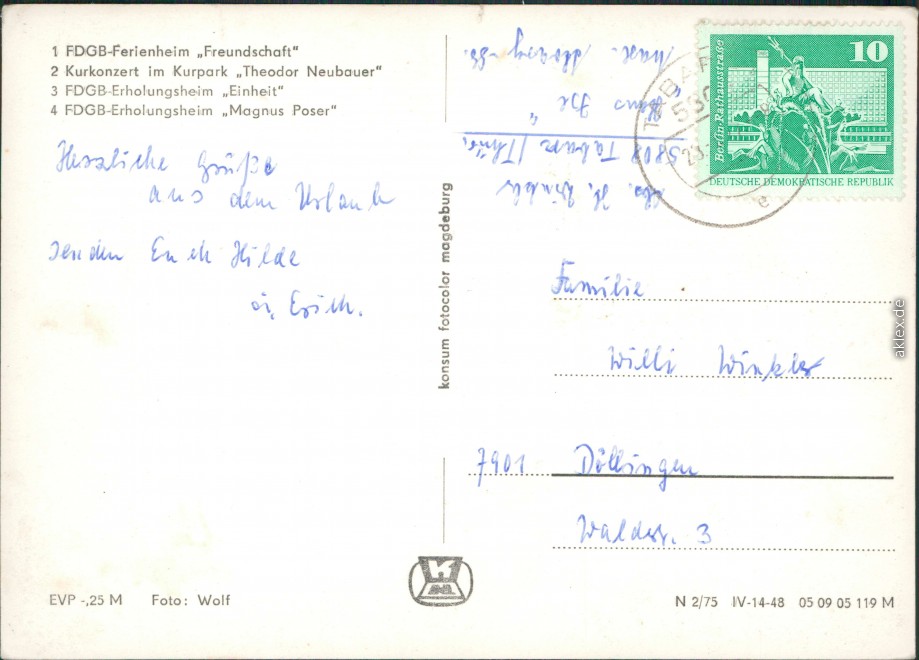 1 FDGB-Ferienheim „Freundschaft"
2 Kurkonzert im Kurpark „Theodor Neubauer"
3 FDGB-Erholungsheim „Einheit"
4 FDGB-Erholungsheim „Magnus Poser"
Herzliche Grüße
aus dem Urlaub
senden Euch Hilde
u. Erich.
EVP -,25 M Foto: Wolf
konsum fotocolor magdeburg
Abs. H. Winkler
5808 Tabarz/Thür.
10
Berlin-Rathausstraße
DEUTSCHE DEMOKRATISCHE REPUBLIK
Familie
Willi Winkler
7901 Döllingen
Waldstr. 3
N 2/75 IV-14-48 05 09 05 119 M
aklex.de